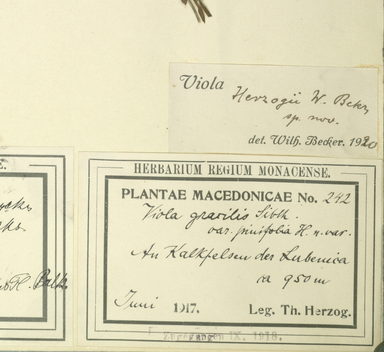 Viola
Herzogii W. Bckr.
sp. nov.
det. Wilh. Becker. 1920
HERBARIUM REGIUM MONACENSE.
PLANTAE MACEDONICAE No. 242
Viola gracilis Sibth.
var. pinifolia H. n. var.
An Kalkfelsen der Ljubenica
ca 950 m
Juni 1917. Leg. Th. Herzog.
Zugegangen IX. 1918.